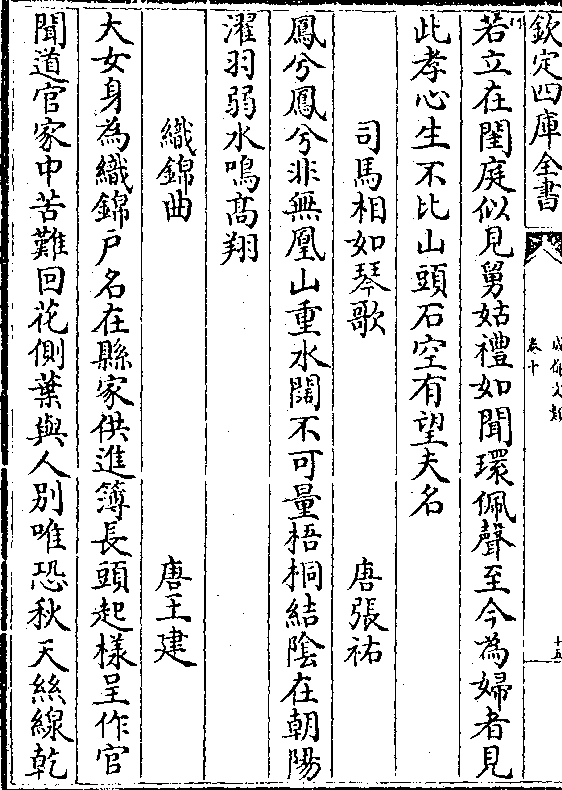 欽定四庫全書
成都文類
卷十
十五
若立在閨庭似見舅姑禮如聞環佩聲至今為婦者見
此孝心生不比山頭石空有望夫名
司馬相如琴歌 唐張祐
鳳兮鳳兮非無凰山重水闊不可量梧桐結陰在朝陽
濯羽弱水鳴高翔
織錦曲 唐王建
大女身為織錦戶名在縣家供進簿長頭起樣呈作官
聞道官家中苦難回花側葉與人別唯恐秋天絲線乾